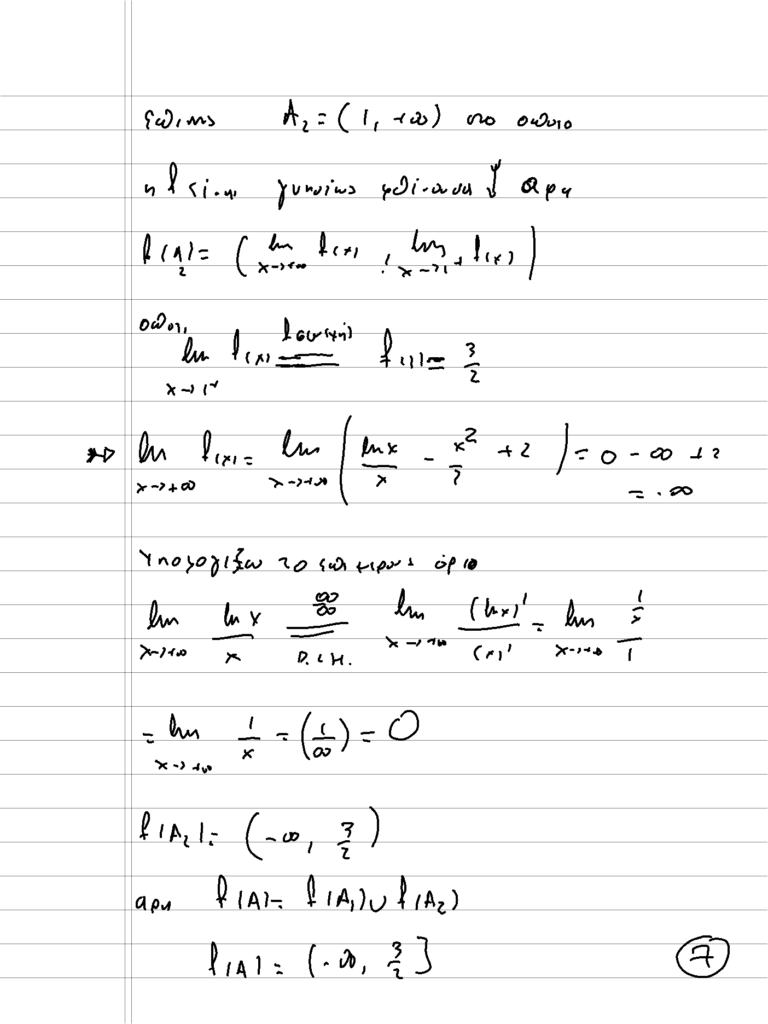 επίσης A₂ = (1, +∞) στο οποίο
η f είναι γνησίως φθίνουσα ↓ άρα
f(A₂) = ( lim x→+∞ f(x) , lim x→1⁺ f(x) )
όπου,
lim x→1⁺ f(x) = f συνεχή f(1) = 3/2
lim x→+∞ f(x) = lim x→+∞ ( lnx/x - x²/2 + 2 ) = 0 - ∞ + 2
= -∞
Υπολογίζω το εσωτερικό όριο
lim x→+∞ lnx/x = ∞/∞ D.L.H. lim x→+∞ (lnx)'/(x)' = lim x→+∞ (1/x)/1
= lim x→+∞ 1/x = (1/∞) = 0
f(A₂) = (-∞, 3/2)
άρα f(A) = f(A₁) ∪ f(A₂)
f(A) = (-∞, 3/2]
7